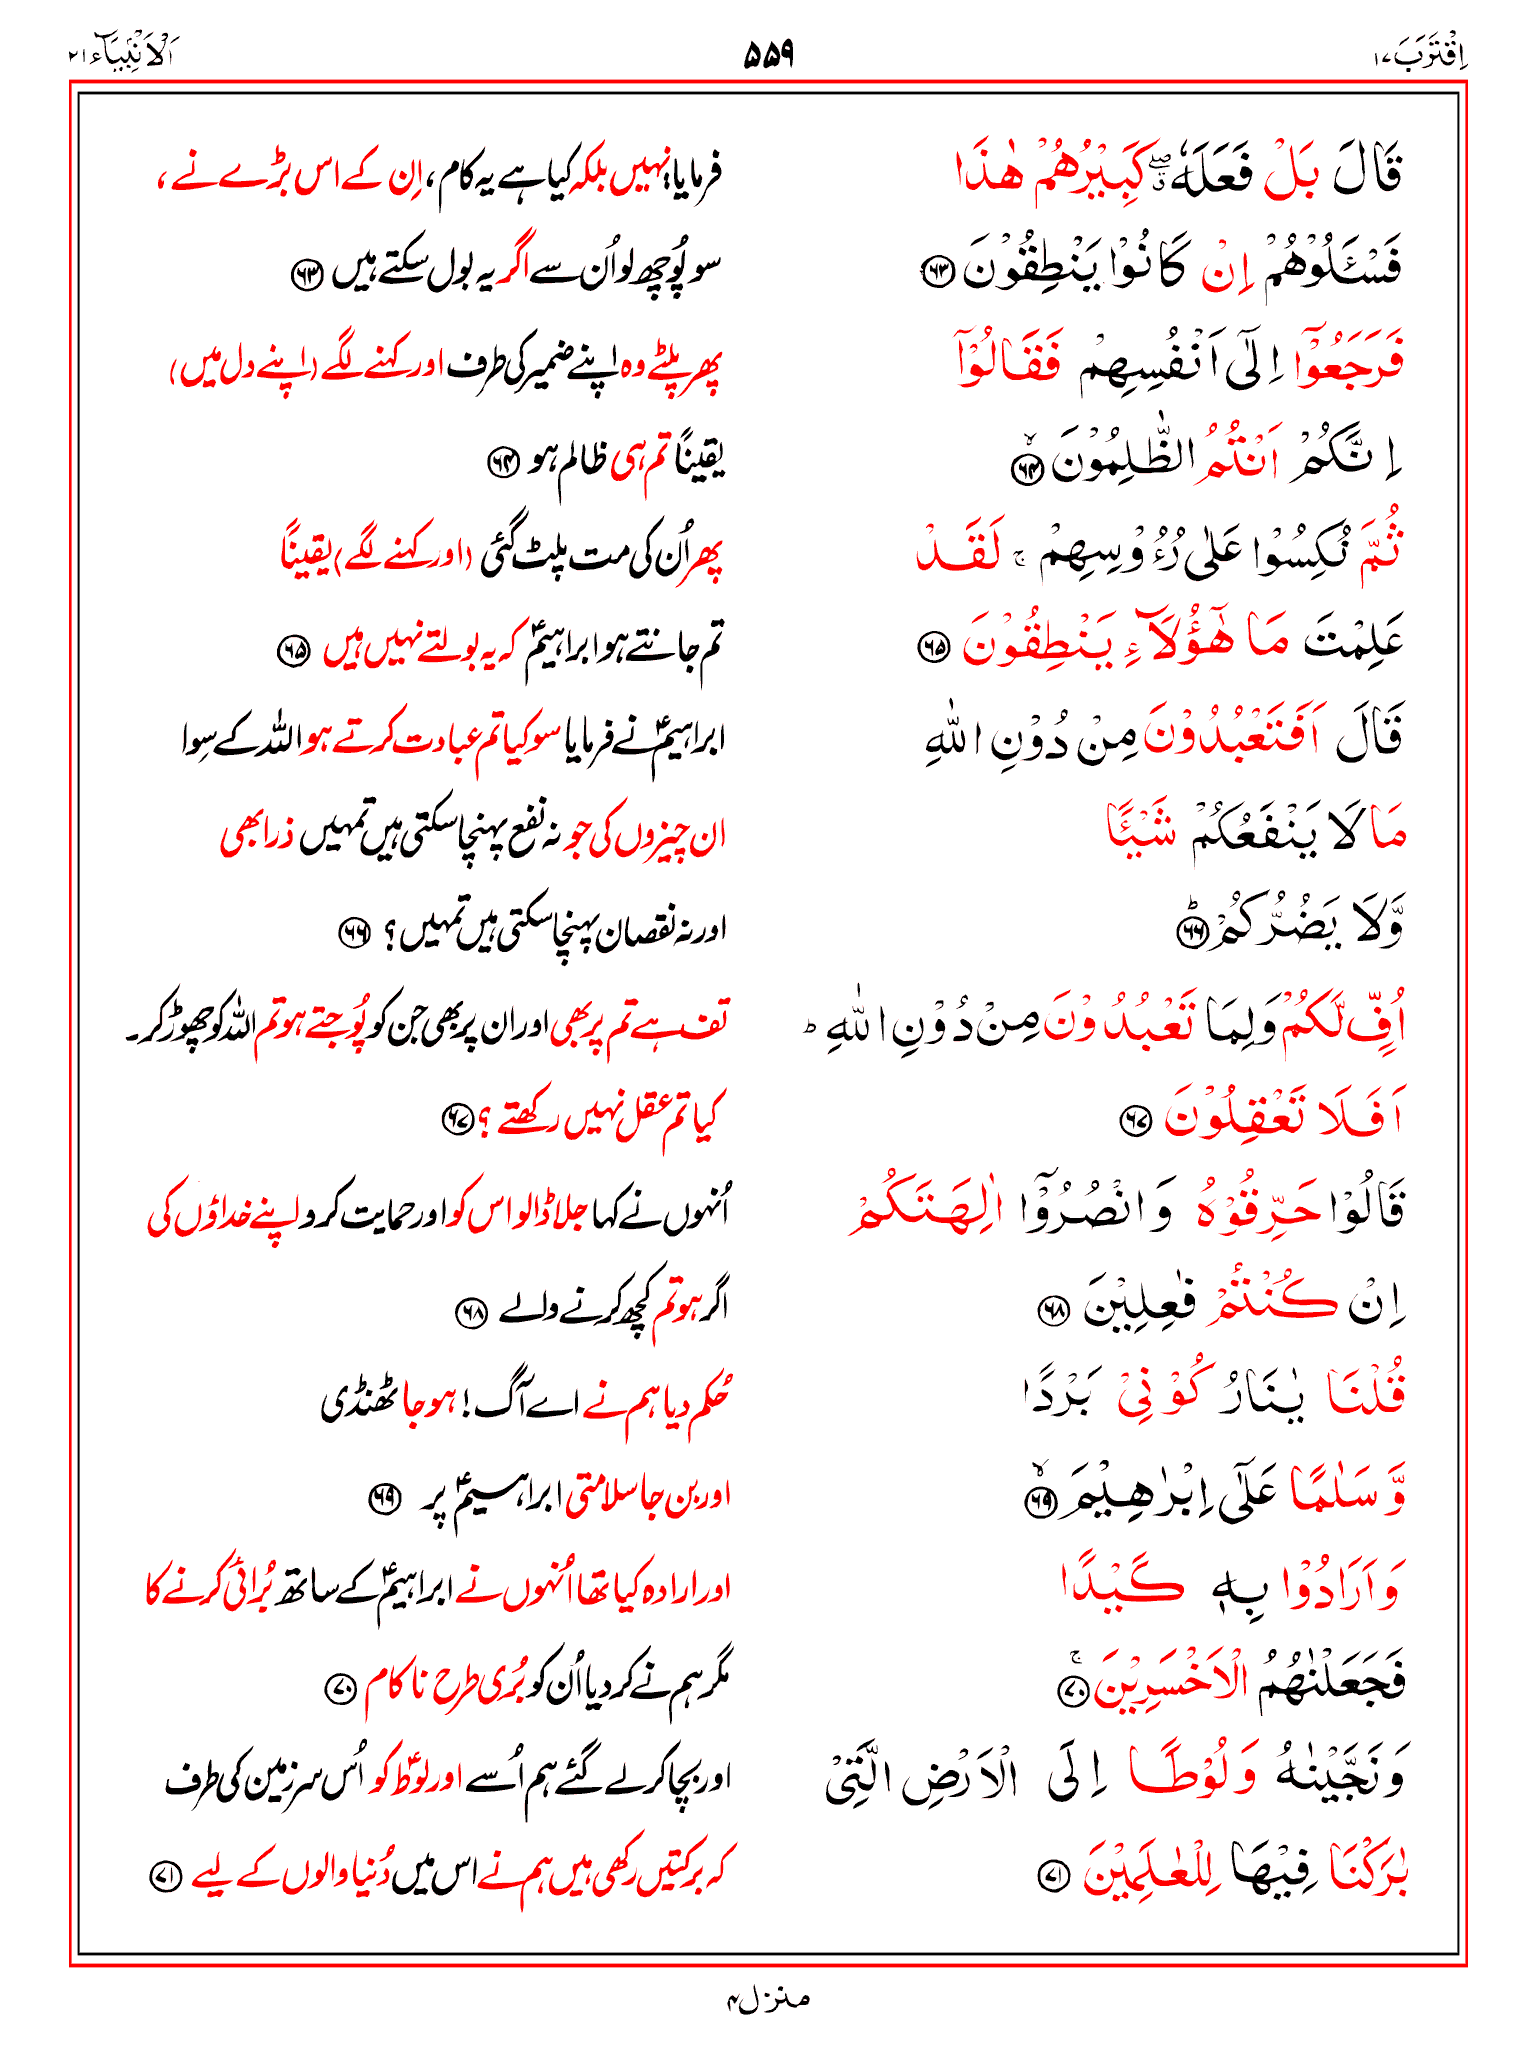 اِقْتَرَبَ ۱۷
۵۵۹
اَلْاَنْۢبِيَآء ۲۱
قَالَ بَلْ فَعَلَهٗ ۖۗ كَبِيْرُهُمْ هٰذَا
فرمایا: نہیں بلکہ کیا ہے یہ کام، اِن کے اس بڑے نے،
فَسْـَٔلُوْهُمْ اِنْ كَانُوْا يَنْطِقُوْنَ ۶۳
سو پُوچھ لو اُن سے اگر یہ بول سکتے ہیں ۶۳
فَرَجَعُوْۤا اِلٰٓى اَنْفُسِهِمْ فَقَالُوْۤا
پھر پلٹے وہ اپنے ضمیر کی طرف اور کہنے لگے (اپنے دل میں)
اِنَّكُمْ اَنْتُمُ الظّٰلِمُوْنَ ۙ ۶۴
یقیناً تم ہی ظالم ہو ۶۴
ثُمَّ نُكِسُوْا عَلٰى رُءُوْسِهِمْ ۚ لَقَدْ
پھر اُن کی مت پلٹ گئی (اور کہنے لگے) یقیناً
عَلِمْتَ مَا هٰٓؤُلَآءِ يَنْطِقُوْنَ ۶۵
تم جانتے ہو ابراہیمؑ کہ یہ بولتے نہیں ہیں ۶۵
قَالَ اَفَتَعْبُدُوْنَ مِنْ دُوْنِ اللّٰهِ
ابراہیمؑ نے فرمایا سو کیا تم عبادت کرتے ہو اللہ کے سِوا
مَا لَا يَنْفَعُكُمْ شَيْـًٔا
ان چیزوں کی جو نہ نفع پہنچا سکتی ہیں تمہیں ذرا بھی
وَّلَا يَضُرُّكُمْ ؕ ۶۶
اور نہ نقصان پہنچا سکتی ہیں تمہیں؟ ۶۶
اُفٍّ لَّكُمْ وَلِمَا تَعْبُدُوْنَ مِنْ دُوْنِ اللّٰهِ ؕ
تف ہے تم پر بھی اور ان پر بھی جن کو پُوجتے ہو تم اللہ کو چھوڑ کر۔
اَفَلَا تَعْقِلُوْنَ ۶۷
کیا تم عقل نہیں رکھتے؟ ۶۷
قَالُوْا حَرِّقُوْهُ وَانْصُرُوْۤا اٰلِهَتَكُمْ
اُنہوں نے کہا جلا ڈالو اس کو اور حمایت کرو اپنے خداؤں کی
اِنْ كُنْتُمْ فٰعِلِيْنَ ۶۸
اگر ہو تم کچھ کرنے والے ۶۸
قُلْنَا يٰنَارُ كُوْنِيْ بَرْدًا
حُکم دیا ہم نے اے آگ! ہو جا ٹھنڈی
وَّسَلٰمًا عَلٰٓى اِبْرٰهِيْمَ ۙ ۶۹
اور بن جا سلامتی ابراہیمؑ پر ۶۹
وَاَرَادُوْا بِهٖ كَيْدًا
اور ارادہ کیا تھا اُنہوں نے ابراہیمؑ کے ساتھ بُرائی کرنے کا
فَجَعَلْنٰهُمُ الْاَخْسَرِيْنَ ۚ ۷۰
مگر ہم نے کر دیا اُن کو بُری طرح ناکام ۷۰
وَنَجَّيْنٰهُ وَلُوْطًا اِلَى الْاَرْضِ الَّتِيْ
اور بچا کر لے گئے ہم اُسے اور لوطؑ کو اُس سرزمین کی طرف
بٰرَكْنَا فِيْهَا لِلْعٰلَمِيْنَ ۷۱
کہ برکتیں رکھی ہیں ہم نے اس میں دُنیا والوں کے لیے ۷۱
منزل ۴